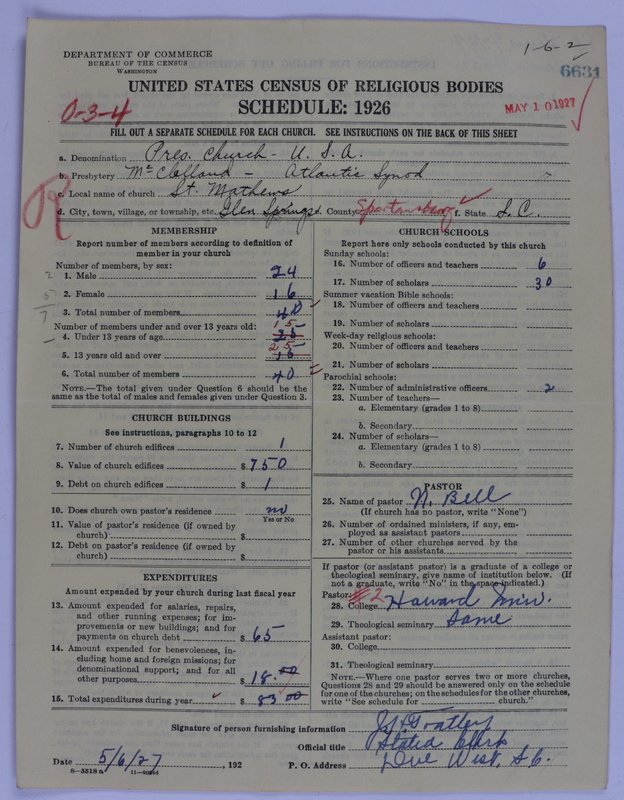 DEPARTMENT OF COMMERCE
BUREAU OF THE CENSUS
WASHINGTON
1-6-2
6631
UNITED STATES CENSUS OF RELIGIOUS BODIES
SCHEDULE: 1926
0-3-4
MAY 10 1927
FILL OUT A SEPARATE SCHEDULE FOR EACH CHURCH. SEE INSTRUCTIONS ON THE BACK OF THIS SHEET
a. Denomination Pres. Church - U. S. A.
b. Presbytery McClelland - Atlantic Synod
c. Local name of church St. Mathews
R
d. City, town, village, or township, etc. Glen Springs. County Spartanburg f. State S. C.
MEMBERSHIP
Report number of members according to definition of
member in your church
Number of members, by sex:
1. Male 24
2. Female 16
3. Total number of members 40
Number of members under and over 13 years old:
4. Under 13 years of age 15
5. 13 years old and over 25
6. Total number of members 40
NOTE.—The total given under Question 6 should be
same as the total of males and females given under Question 3.
CHURCH BUILDINGS
See instructions, paragraphs 10 to 12
7. Number of church edifices 1
8. Value of church edifices $ 750
9. Debt on church edifices $ 1
10. Does church own pastor's residence no
Yes or No
11. Value of pastor's residence (if owned by
church) $
12. Debt on pastor's residence (if owned by
church) $
EXPENDITURES
Amount expended by your church during last fiscal year
13. Amount expended for salaries, repairs,
and other running expenses; for im-
provements or new buildings; and for
payments on church debt $ 65
14. Amount expended for benevolences, in-
cluding home and foreign missions; for
denominational support; and for all
other purposes $ 18.00
15. Total expenditures during year $ 83 00
CHURCH SCHOOLS
Report here only schools conducted by this church
Sunday schools:
16. Number of officers and teachers 6
17. Number of scholars 30
Summer vacation Bible schools:
18. Number of officers and teachers
19. Number of scholars
Week-day religious schools:
20. Number of officers and teachers
21. Number of scholars
Parochial schools:
22. Number of administrative officers 2
23. Number of teachers—
a. Elementary (grades 1 to 8)
b. Secondary
24. Number of scholars—
a. Elementary (grades 1 to 8)
b. Secondary
PASTOR
25. Name of pastor N. Bell
(If church has no pastor, write "None")
26. Number of ordained ministers, if any, em-
ployed as assistant pastors
27. Number of other churches served by the
pastor or his assistants
If pastor (or assistant pastor) is a graduate of a college or
theological seminary, give name of institution below. (If
not a graduate, write "No" in the space indicated.)
Pastor: #2
28. College Howard Univ.
29. Theological seminary Same
Assistant pastor:
30. College
31. Theological seminary
NOTE.—Where one pastor serves two or more churches,
Questions 28 and 29 should be answered only on the schedule
for one of the churches; on the schedules for the other churches,
write "See schedule for church."
Signature of person furnishing information
Official title Stated Clerk
Date 5/6/27, 192 P. O. Address Due West, S. C.
8-5518 a